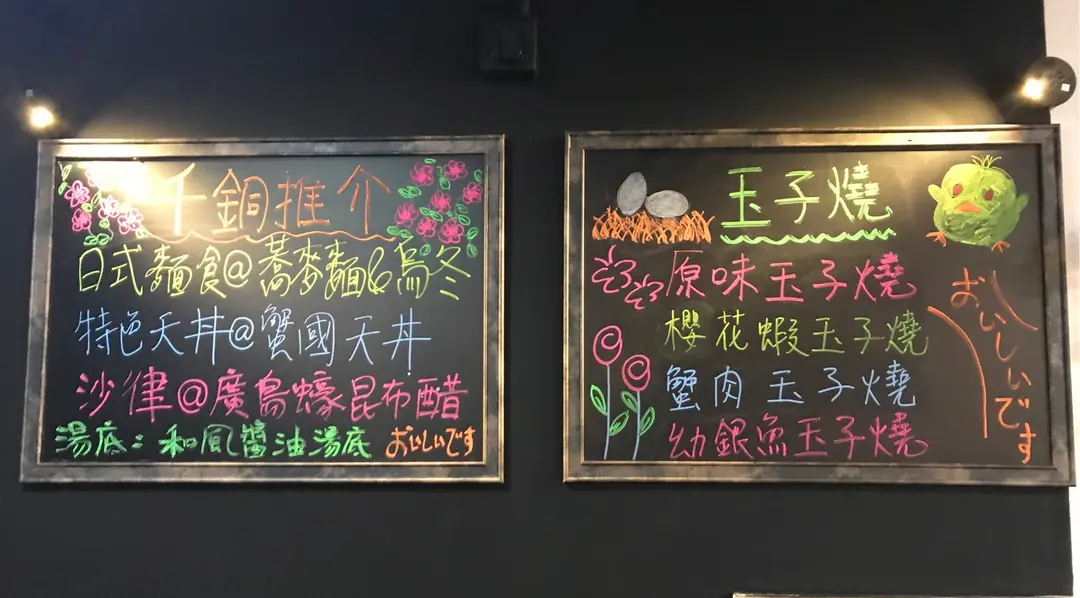 千銅推介
日式麵食@蕎麥麵&烏冬
特色天丼@蟹國天丼
沙律@廣島蠔昆布醋
湯底：和風醬油湯底 おいしいです
玉子燒
原味玉子燒
櫻花蝦玉子燒
蟹肉玉子燒
幼銀魚玉子燒
おいしいです